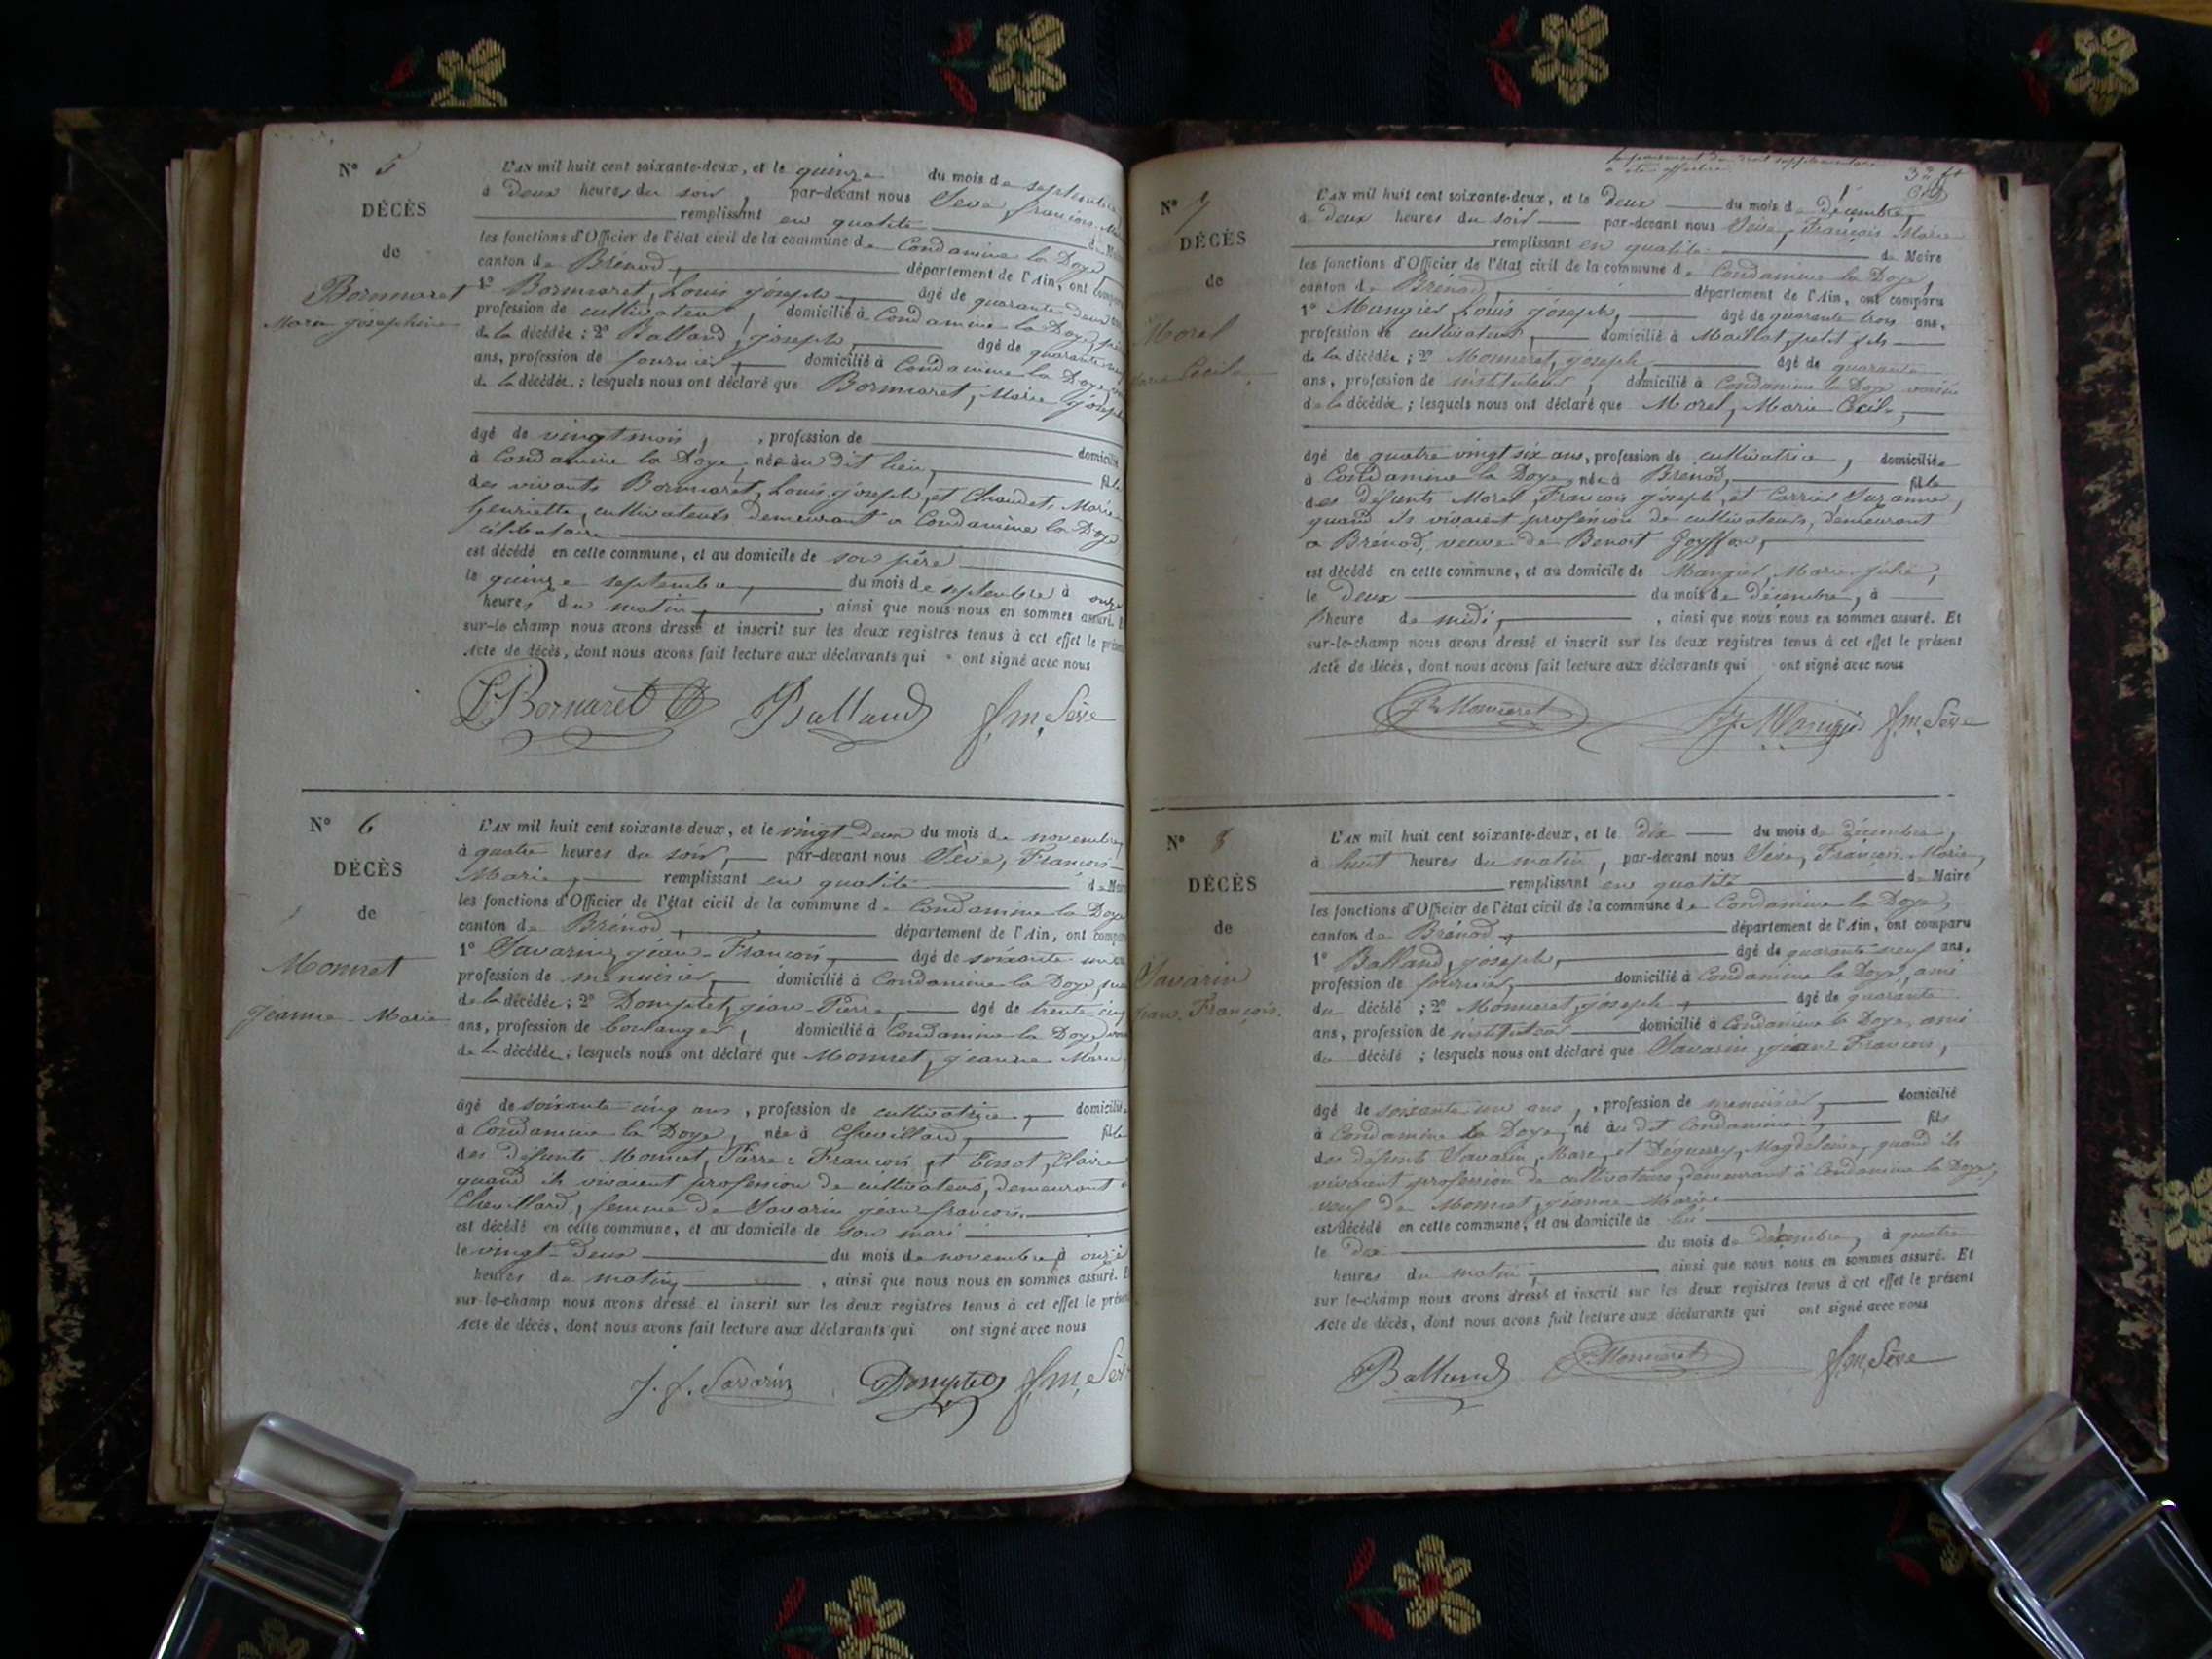 N° 5
DÉCÈS
de
Bornaret
Marie joséphine
L'AN mil huit cent soixante-deux, et le quinze du mois de septembre
à deux heures du soir, par-devant nous Sève françois
remplissant en qualité de
les fonctions d'Officier de l'état civil de la commune de Condamine la Doye
canton de Brénod, département de l'Ain, ont
1° Bornaret, Louis joseph, âgé de quarante deux
profession de cultivateur, domicilié à Condamine la Doye,
de la décédée; 2° Balland, joseph, âgé de quarante
ans, profession de fournier, domicilié à Condamine la Doye
de la décédée; lesquels nous ont déclaré que Bornaret, Marie
âgé de vingt mois, profession de domicilié
à Condamine la Doye, née au dit lieu, fille
des vivants Bornaret, Louis joseph, et Chaudet, Marie
henriette, cultivateurs demeurant à Condamine la Doye
célibataire
est décédé en cette commune, et au domicile de son père
le quinze septembre, du mois de septembre à onze
heures du matin, ainsi que nous nous en sommes assuré.
sur-le champ nous avons dressé et inscrit sur les deux registres tenus à cet effet le
Acte de décès, dont nous avons fait lecture aux déclarants qui ont signé avec nous
L Bornaret Balland f.m. Sève
N° 6
DÉCÈS
de
Monnet
Jeanne-Marie
L'AN mil huit cent soixante-deux, et le vingt-deux du mois de novembre,
à quatre heures du soir, par-devant nous Sève, François
Marie, remplissant en qualité de
les fonctions d'Officier de l'état civil de la commune de Condamine la Doye
canton de Brénod, département de l'Ain, ont
1° Savarin, jean-François, âgé de soixante un
profession de menuisier, domicilié à Condamine la Doye,
de la décédée; 2° Domptet, jean-Pierre, âgé de trente cinq
ans, profession de boulanger, domicilié à Condamine la Doye
de la décédée; lesquels nous ont déclaré que Monnet, jeanne Marie
âgé de soixante cinq ans, profession de cultivatrice, domiciliée
à Condamine la Doye, née à Chevillard, fille
des défunts Monnet, Pierre-François et Claire
quand ils vivaient profession de cultivateurs, demeurant à
Chevillard, femme de Savarin jean françois
est décédé en cette commune, et au domicile de son mari
le vingt-deux du mois de novembre, à onze
heures du matin, ainsi que nous nous en sommes assuré.
sur-le-champ nous avons dressé et inscrit sur les deux registres tenus à cet effet le
Acte de décès, dont nous avons fait lecture aux déclarants qui ont signé avec nous
J. f. Savarin Domptet f.m. Sève
N° 7
DÉCÈS
de
Morel
Cécile
L'AN mil huit cent soixante-deux, et le deux du mois de Décembre,
à deux heures du soir par-devant nous Sève, François Marie
remplissant en qualité de Maire
les fonctions d'Officier de l'état civil de la commune de Condamine la Doye,
canton de Brénod, département de l'Ain, ont comparu
1° Mangier, Louis joseph, âgé de quarante trois ans,
profession de cultivateur, domicilié à Maillat, petit fils
de la décédée; 2° Monneret, joseph, âgé de quarante
ans, profession de instituteur, domicilié à Condamine la Doye voisin
de la décédée; lesquels nous ont déclaré que Morel, Marie Cécile,
âgé de quatre vingt six ans, profession de cultivatrice, domiciliée
à Condamine la Doye, née à Brénod, fille
des défunts Morel, François joseph, et Carrier Suzanne,
quand ils vivaient profession de cultivateurs, demeurant
à Brénod, veuve de Benoit Joyffon,
est décédé en cette commune, et au domicile de Mangier, Marie-julie,
le deux du mois de décembre, à
heure de midi, ainsi que nous nous en sommes assuré. Et
sur-le-champ nous avons dressé et inscrit sur les deux registres tenus à cet effet le présent
Acte de décès, dont nous avons fait lecture aux déclarants qui ont signé avec nous
Monneret Mangier f.m. Sève
N° 8
DÉCÈS
de
Savarin
Jean-François.
L'AN mil huit cent soixante-deux, et le dix du mois de Décembre,
à huit heures du matin, par-devant nous Sève, François-Marie,
remplissant en qualité de Maire
les fonctions d'Officier de l'état civil de la commune de Condamine la Doye,
canton de Brénod, département de l'Ain, ont comparu
1° Balland, joseph, âgé de quarante-neuf ans,
profession de fournier, domicilié à Condamine la Doye, ami
du décédé; 2° Monneret, joseph, âgé de quarante
ans, profession de instituteur domicilié à Condamine la Doye, ami
du décédé; lesquels nous ont déclaré que Savarin, jean-François,
âgé de soixante un ans, profession de menuisier, domicilié
à Condamine la Doye, né au dit Condamine, fils
des défunts Savarin, Marc, et Déguerry, Magdeleine, quand ils
vivaient profession de cultivateurs, demeurant à Condamine la Doye,
veuf de Monnet, jeanne-Marie
est décédé en cette commune, et au domicile de lui
le dix du mois de décembre, à quatre
heures du matin, ainsi que nous nous en sommes assuré. Et
sur le-champ nous avons dressé et inscrit sur les deux registres tenus à cet effet le présent
Acte de décès, dont nous avons fait lecture aux déclarants qui ont signé avec nous
Balland Monneret f.m. Sève